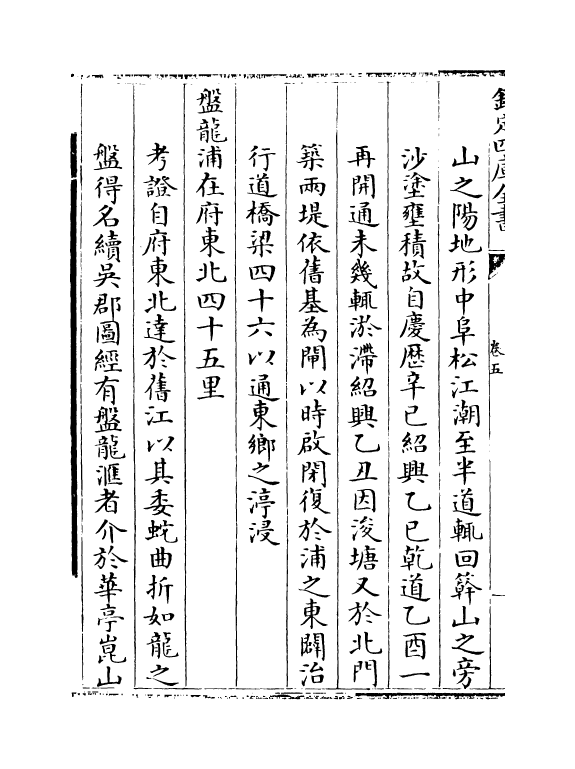 欽定四庫全書
卷五
山之陽地形中阜松江潮至半道輒回簳山之旁
沙塗壅積故自慶歷辛巳紹興乙巳乾道乙酉一
再開通未幾輒淤滯紹興乙丑因浚塘又於北門
築兩堤依舊基為閘以時啟閉復於浦之東闢治
行道橋梁四十六以通東鄉之渟浸
盤龍浦在府東北四十五里
考證自府東北達於舊江以其委蛇曲折如龍之
盤得名續吳郡圖經有盤龍滙者介於華亭崑山